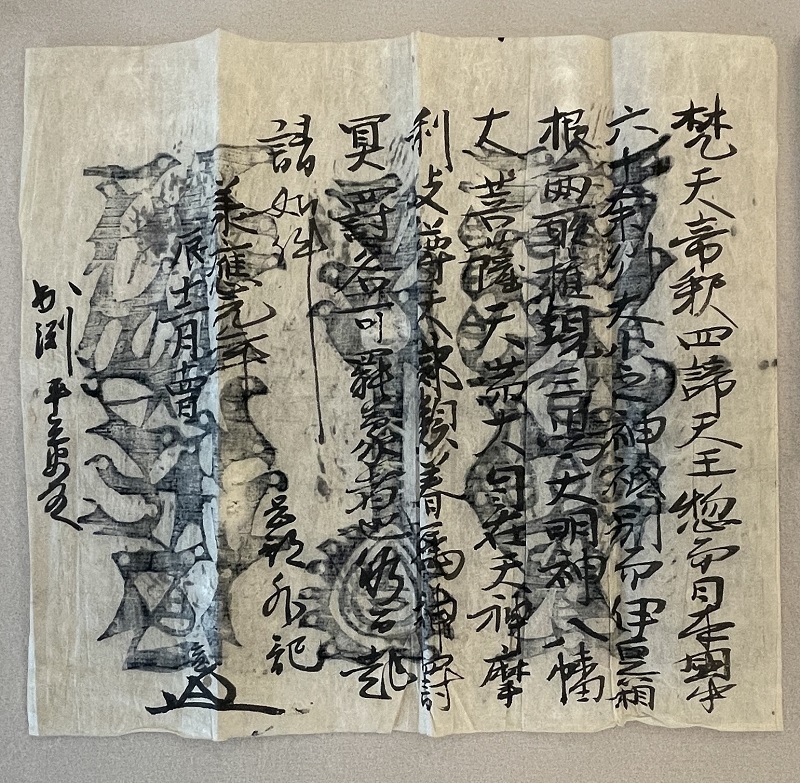 梵天帝釈四諦天王惣而日本國中
六十余州大小之神祇別而伊豆箱
根両所権現三島大明神八幡
大菩薩天満大自在天神摩
利支尊天部類眷属神罸
冥罸各可罷蒙者也仍而起
請如件
承應元年
辰十二月吉日
外記